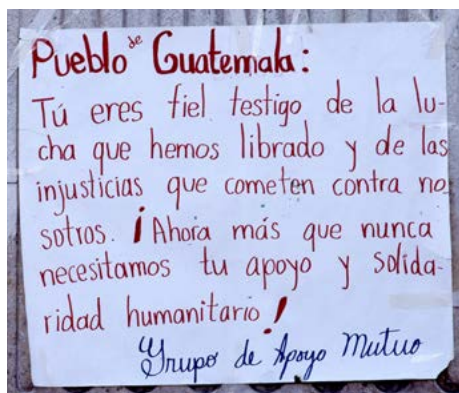 Pueblo de Guatemala:
Tú eres fiel testigo de la lu-
cha que hemos librado y de las
injusticias que cometen contra no
sotros. ¡Ahora más que nunca
necesitamos tu apoyo y solida-
ridad humanitario!
Grupo de Apoyo Mutuo